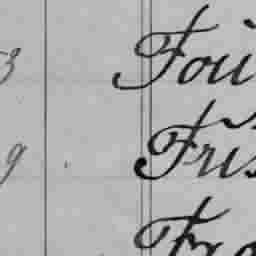 3 Fou
9 Fris
Fra